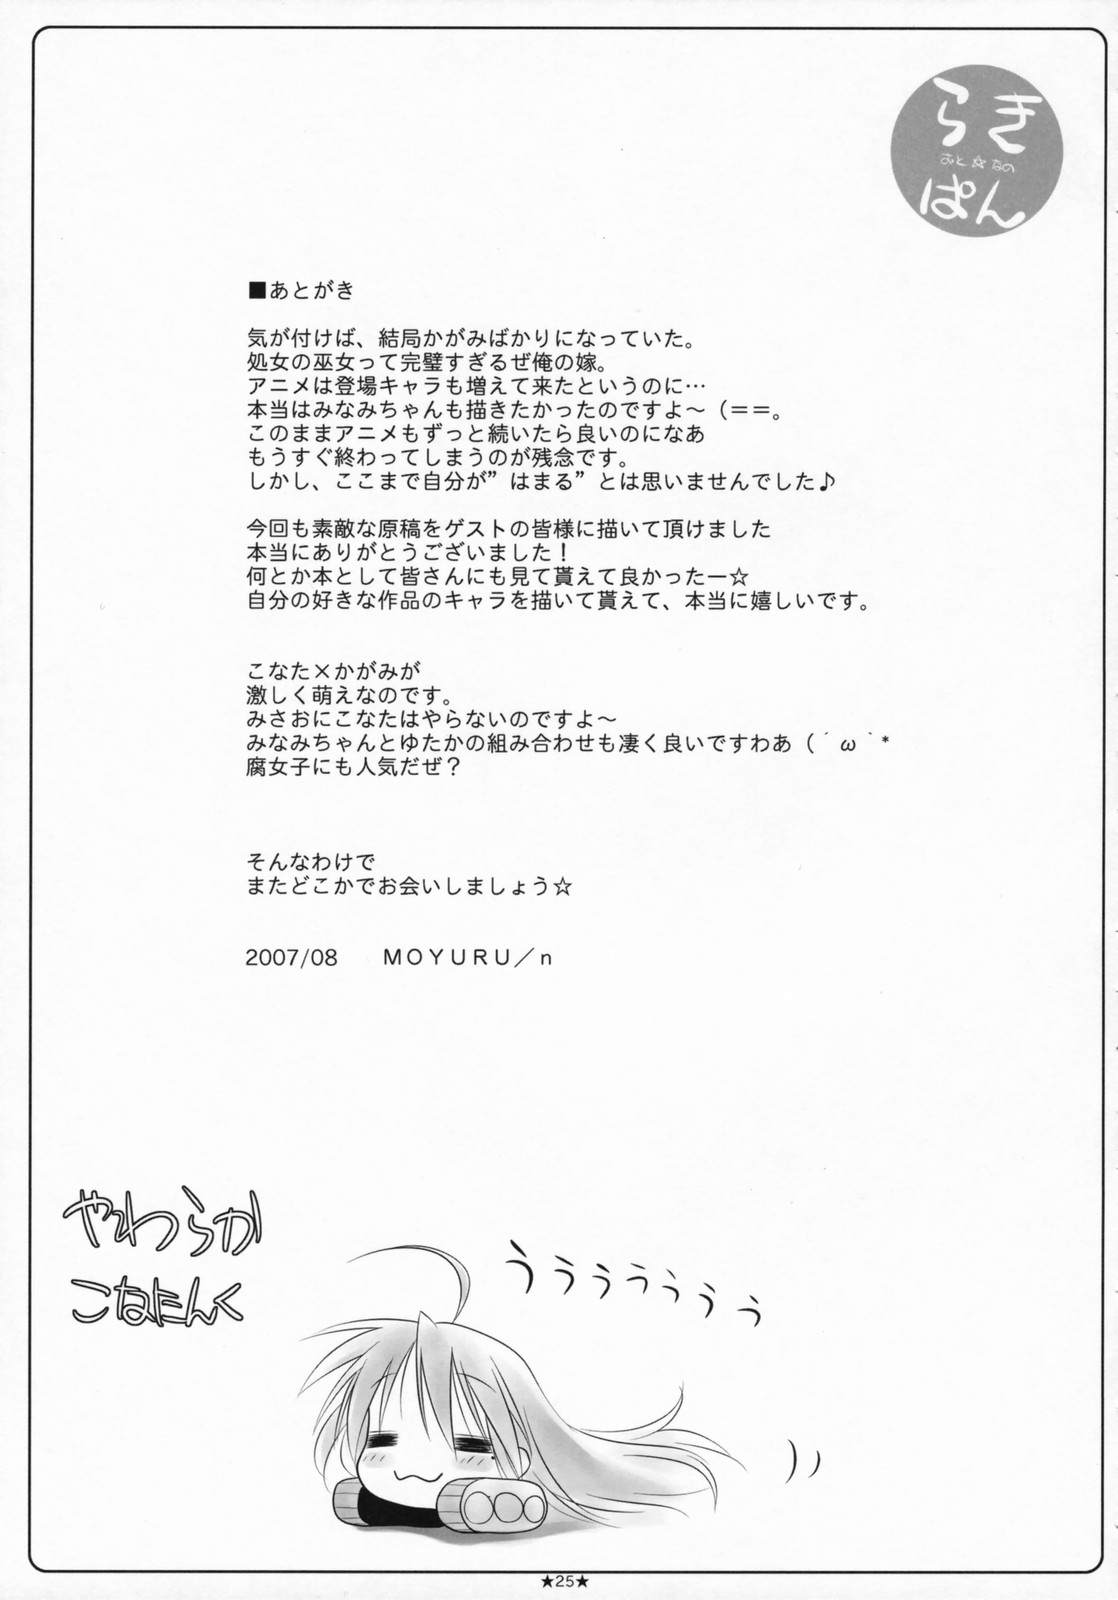 らき
おと☆なの
ぱん
■あとがき
気が付けば、結局かがみばかりになっていた。
処女の巫女って完璧すぎるぜ俺の嫁。
アニメは登場キャラも増えて来たというのに…
本当はみなみちゃんも描きたかったのですよ～（＝＝。
このままアニメもずっと続いたら良いのになあ
もうすぐ終わってしまうのが残念です。
しかし、ここまで自分が”はまる”とは思いませんでした♪
今回も素敵な原稿をゲストの皆様に描いて頂けました
本当にありがとうございました！
何とか本として皆さんにも見て貰えて良かったー☆
自分の好きな作品のキャラを描いて貰えて、本当に嬉しいです。
こなた×かがみが
激しく萌えなのです。
みさおにこなたはやらないのですよ～
みなみちゃんとゆたかの組み合わせも凄く良いですわあ（´ω｀*
腐女子にも人気だぜ？
そんなわけで
またどこかでお会いしましょう☆
2007/08　ＭＯＹＵＲＵ／ｎ
やわらか
こなたんく
うううううぅぅ
★25★